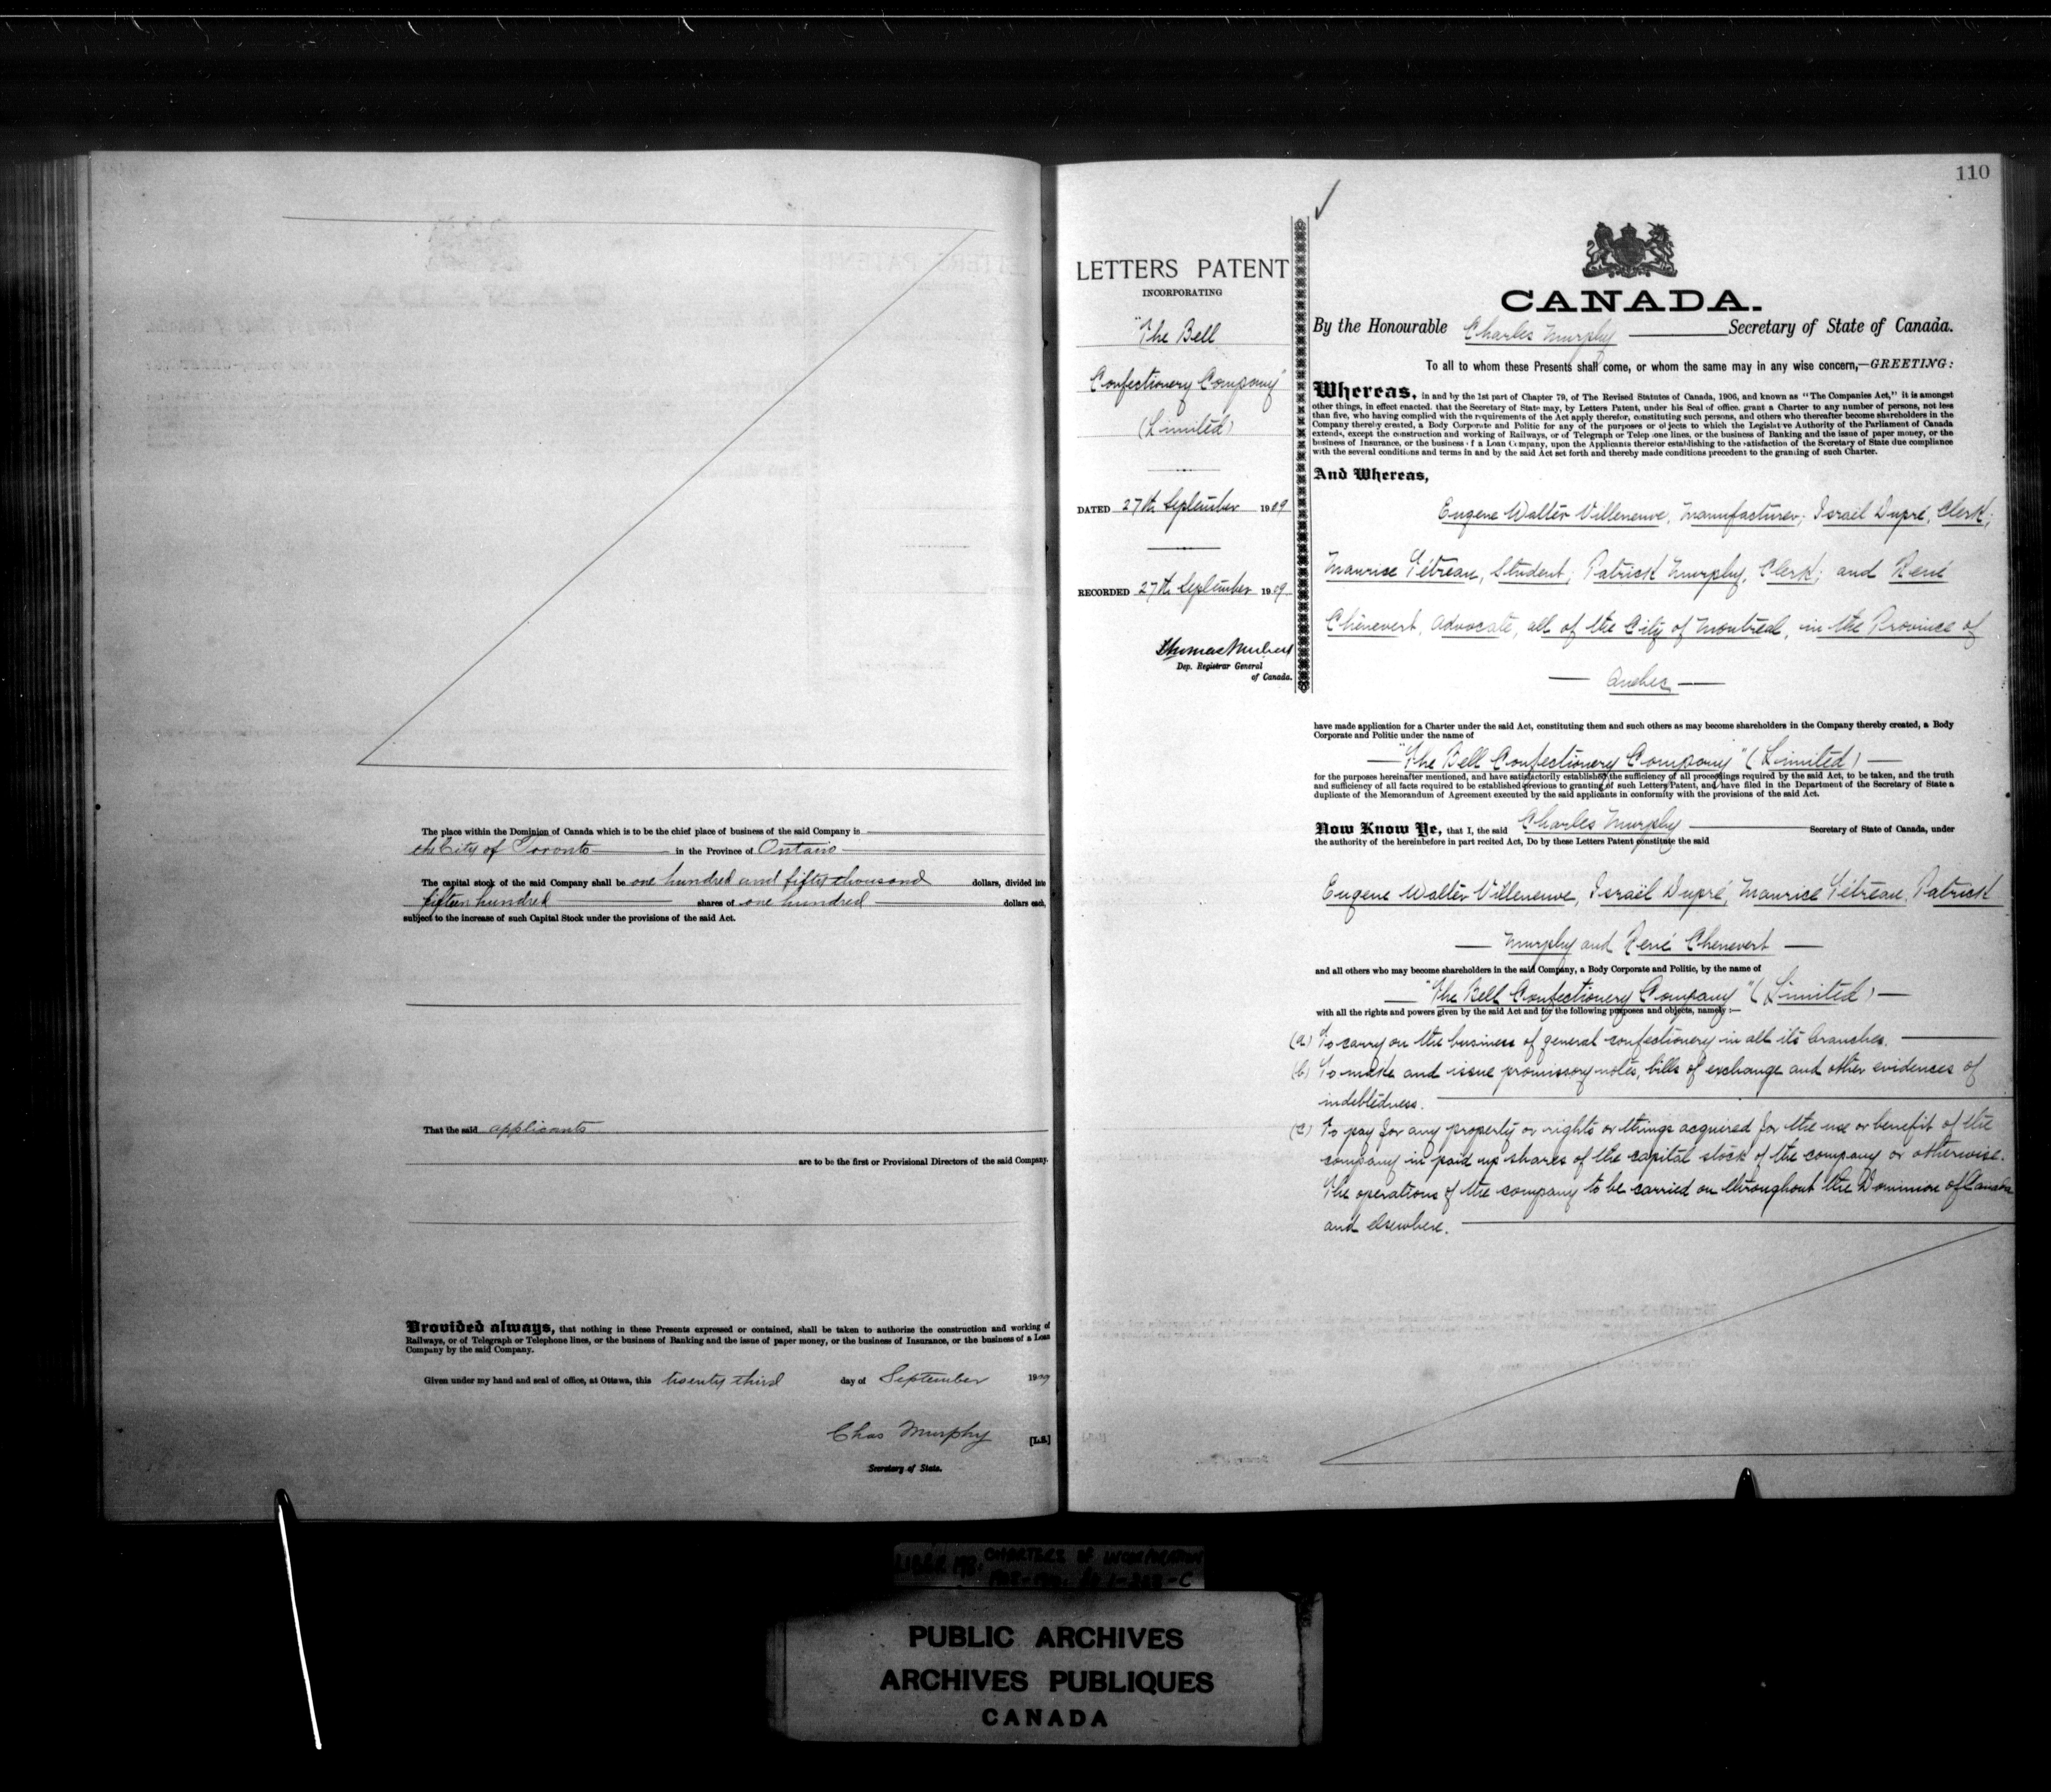 The place within the Dominion of Canada which is to be the chief place of business of the said Company is
the City of Toronto in the Province of Ontario
The capital stock of the said Company shall be one hundred and fifty thousand dollars, divided into
fifteen hundred shares of one hundred dollars each,
subject to the increase of such Capital Stock under the provisions of the said Act.
That the said applicants
are to be the first or Provisional Directors of the said Company.
Provided always, that nothing in these Presents expressed or contained, shall be taken to authorize the construction and working of
Railways, or of Telegraph or Telephone lines, or the business of Banking and the issue of paper money, or the business of Insurance, or the business of a Loan
Company by the said Company.
Given under my hand and seal of office, at Ottawa, this twenty third day of September 1909
Chas Murphy [L.S.]
Secretary of State.
110
LETTERS PATENT
INCORPORATING
"The Bell
Confectionery Company"
(Limited)
DATED 27th September 1909
RECORDED 27th September 1909
Thomas Mulvey
Dep. Registrar General
of Canada.
CANADA.
By the Honourable Charles Murphy Secretary of State of Canada.
To all to whom these Presents shall come, or whom the same may in any wise concern,—GREETING:
Whereas, in and by the 1st part of Chapter 79, of The Revised Statutes of Canada, 1906, and known as "The Companies Act," it is amongst
other things, in effect enacted, that the Secretary of State may, by Letters Patent, under his Seal of office, grant a Charter to any number of persons, not less
than five, who having complied with the requirements of the Act apply therefor, constituting such persons, and others who thereafter become shareholders in the
Company thereby created, a Body Corporate and Politic for any of the purposes or objects to which the Legislative Authority of the Parliament of Canada
extends, except the construction and working of Railways, or of Telegraph or Telephone lines, or the business of Banking and the issue of paper money, or the
business of Insurance, or the business of a Loan Company, upon the Applicants therefor establishing to the satisfaction of the Secretary of State due compliance
with the several conditions and terms in and by the said Act set forth and thereby made conditions precedent to the granting of such Charter.
And Whereas,
Eugene Walter Villeneuve, Manufacturer; Israël Dupré, Clerk;
Maurice Tétreau, Student; Patrick Murphy, Clerk; and René
Chenevert, Advocate, all of the City of Montreal, in the Province of
Quebec
have made application for a Charter under the said Act, constituting them and such others as may become shareholders in the Company thereby created, a Body
Corporate and Politic under the name of
"The Bell Confectionery Company" (Limited)
for the purposes hereinafter mentioned, and have satisfactorily established the sufficiency of all proceedings required by the said Act, to be taken, and the truth
and sufficiency of all facts required to be established previous to granting of such Letters Patent, and have filed in the Department of the Secretary of State a
duplicate of the Memorandum of Agreement executed by the said applicants in conformity with the provisions of the said Act.
Now Know Ye, that I, the said Charles Murphy Secretary of State of Canada, under
the authority of the hereinbefore in part recited Act, Do by these Letters Patent constitute the said
Eugene Walter Villeneuve, Israël Dupré, Maurice Tétreau, Patrick
Murphy and René Chenevert
and all others who may become shareholders in the said Company, a Body Corporate and Politic, by the name of
"The Bell Confectionery Company" (Limited)
with all the rights and powers given by the said Act and for the following purposes and objects, namely:—
(a) To carry on the business of general confectionery in all its branches.
(b) To make and issue promissory notes, bills of exchange and other evidences of
indebtedness.
(c) To pay for any property or rights or things acquired for the use or benefit of the
company in paid up shares of the capital stock of the company or otherwise.
The operations of the company to be carried on throughout the Dominion of Canada
and elsewhere.
CHARTERS OF INCORPORATION
PUBLIC ARCHIVES
ARCHIVES PUBLIQUES
CANADA